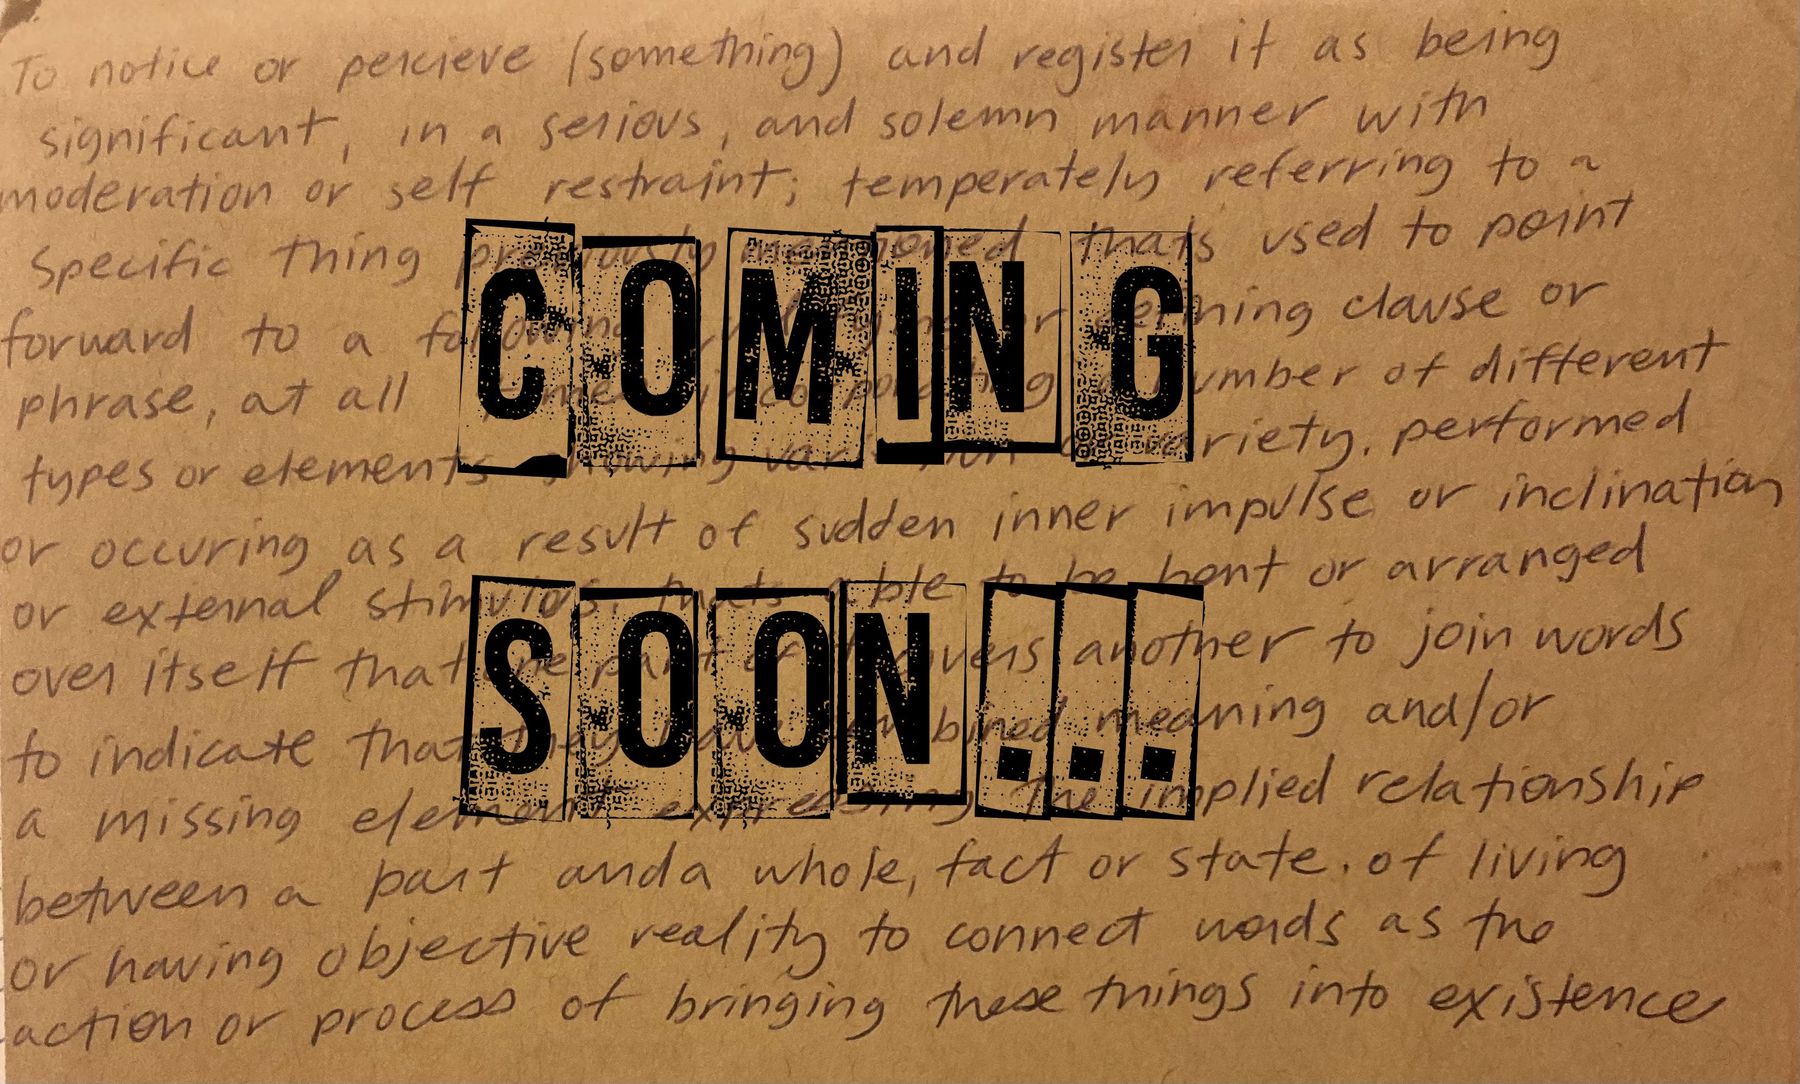 To notice or percieve (something) and register it as being
significant, in a serious, and solemn manner with
moderation or self restraint; temperately referring to a
Specific thing previously mentioned thats used to point
forward to a following or defining clause or
phrase, at all number of different
types or elements showing variety. performed
or occuring as a result of sudden inner impulse or inclination
or external stimulus. thats able to be bent or arranged
over itself that one part of it covers another to join words
to indicate that they have combined meaning and/or
a missing element expressing the implied relationship
between a part and a whole, fact or state. of living
or having objective reality to connect words as the
action or process of bringing these things into existence
COMING
SOON...